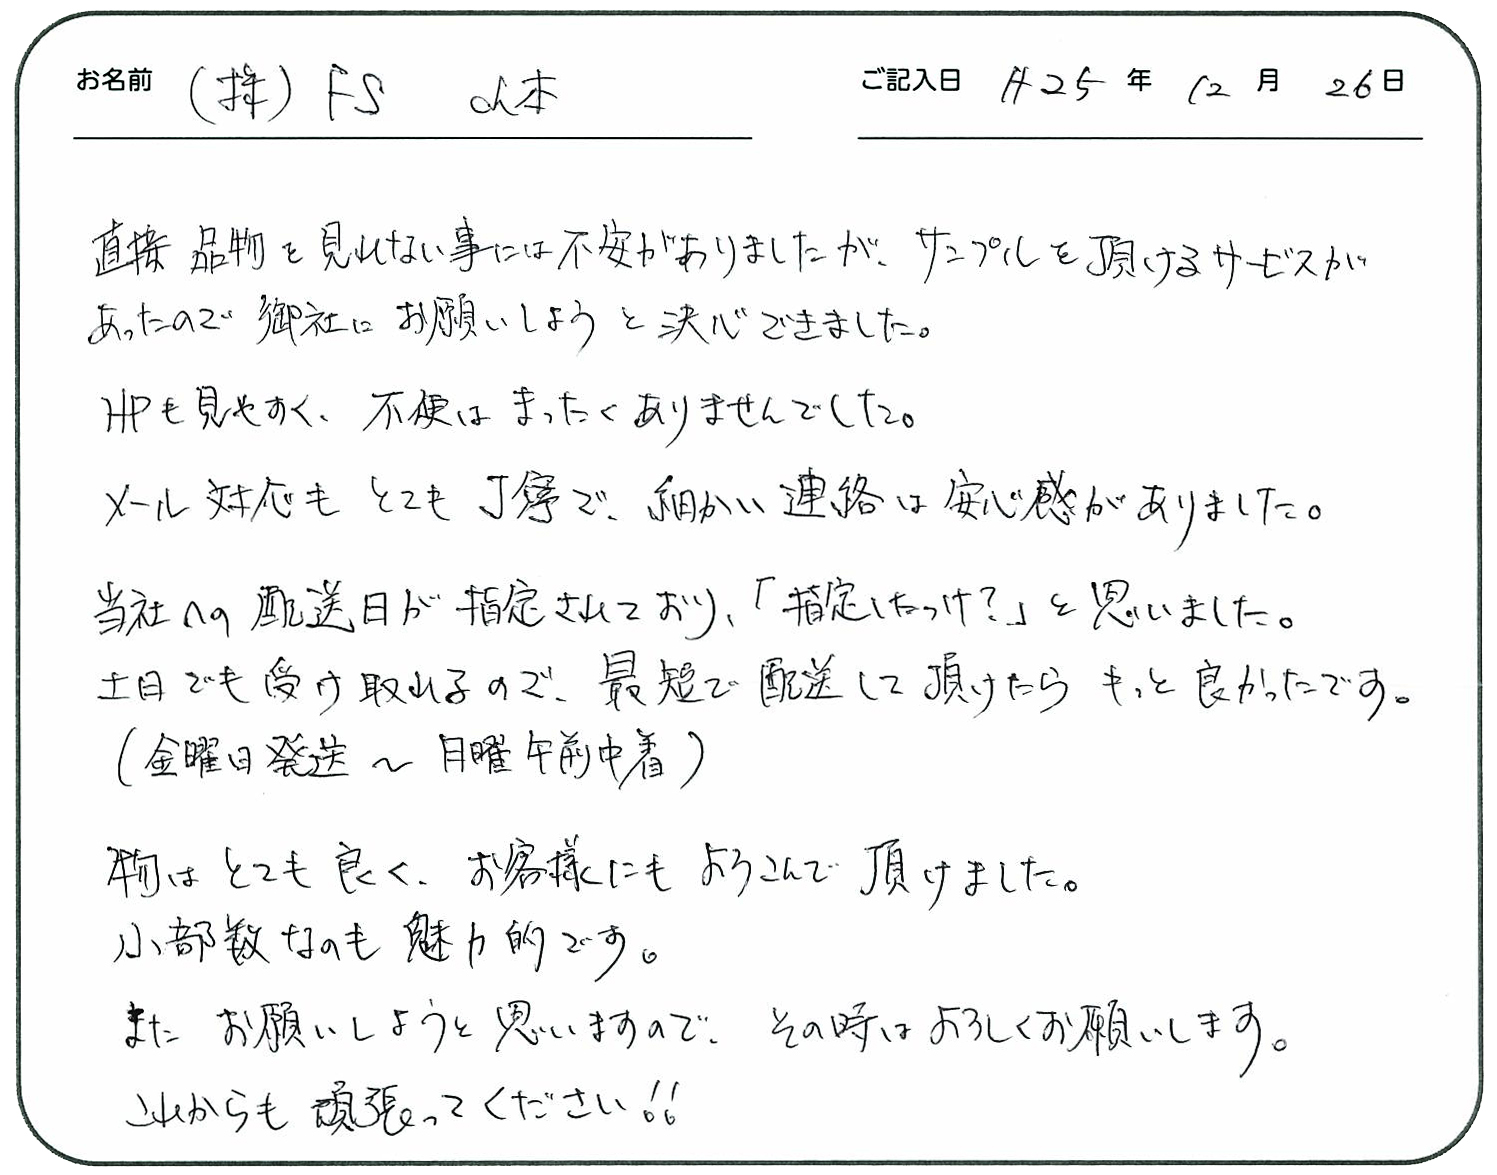 お名前 (株) FS 山本 ご記入日 H25年 12月 26日
直接 品物を見れない事には不安がありましたが、サンプルを頂けるサービスが
あったので 御社に お願いしようと決心できました。
HPも見やすく、不便は まったくありませんでした。
メール対応も とても丁寧で、細かい連絡は安心感がありました。
当社への配送日が指定されており、「指定したっけ?」と思いました。
土日でも受け取れるので、最短で配送して頂けたら もっと良かったです。
(金曜日発送 ～ 月曜午前中着)
物はとても良く、お客様にもよろこんで頂けました。
小部数なのも魅力的です。
また お願いしようと思いますので、その時はよろしくお願いします。
これからも頑張ってください!!